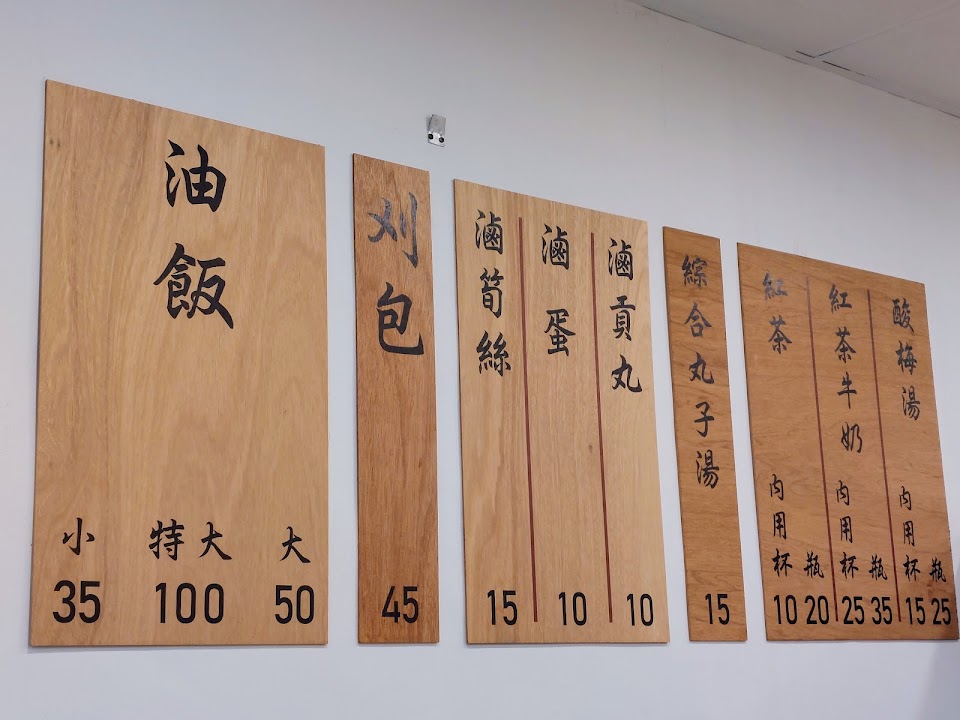 油飯
小 特大 大
35 100 50
刈包
45
滷筍絲
15
滷蛋
10
滷貢丸
10
綜合丸子湯
15
紅茶
內用杯 瓶
10 20
紅茶牛奶
內用杯 瓶
25 35
酸梅湯
內用杯 瓶
15 25